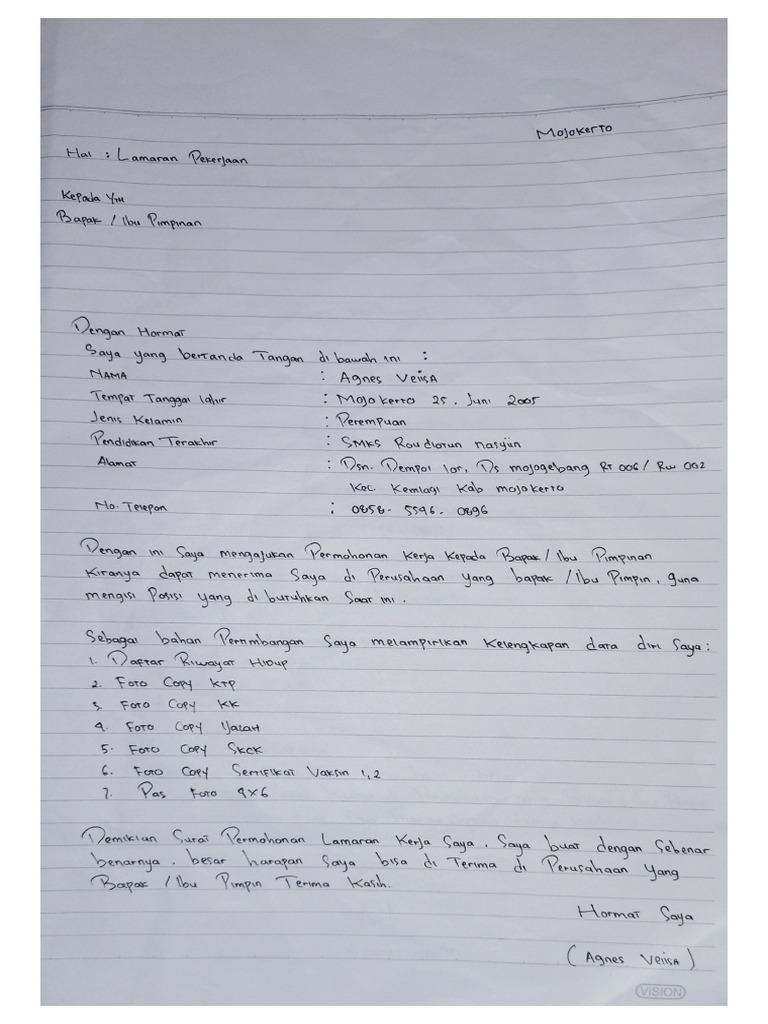 Mojokerto
Hal : Lamaran Pekerjaan
Kepada Yth
Bapak / Ibu Pimpinan
Dengan Hormat
Saya yang bertanda Tangan di bawah ini :
Nama : Agnes Velisa
Tempat Tanggal lahir : Mojokerto 25, Juni 2005
Jenis Kelamin : Perempuan
Pendidikan Terakhir : SMKS Roudlotun nasyiin
Alamat : Dsn. Dempol lor, Ds mojogebang Rt 006 / Rw 002
Kec. Kemlagi Kab mojokerto
No. Telepon : 0858- 5596- 0896
Dengan ini Saya mengajukan Permohonan Kerja Kepada Bapak / Ibu Pimpinan
Kiranya dapat menerima Saya di Perusahaan yang bapak / Ibu Pimpin, guna
mengisi Posisi yang di butuhkan Saat ini.
Sebagai bahan Pertimbangan Saya melampirkan Kelengkapan data diri Saya :
1. Daftar Riwayat Hidup
2. Foto Copy KTP
3. Foto Copy KK
4. Foto Copy Ijazah
5. Foto Copy Skck
6. Foto Copy Sertifikat Vaksin 1,2
7. Pas Foto 4x6
Demikian Surat Permohonan Lamaran Kerja Saya, Saya buat dengan Sebenar
benarnya, besar harapan Saya bisa di Terima di Perusahaan yang
Bapak / Ibu Pimpin Terima Kasih.
Hormat Saya
(Agnes Velisa)
VISION